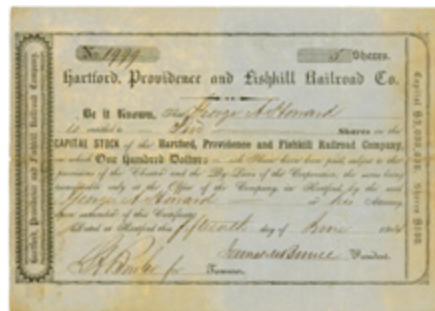 No 1999 5 Shares.
Hartford, Providence and Fishkill Railroad Co.
Be it Known, That George A Howard
is entitled to Five Shares in the
CAPITAL STOCK of the Hartford, Providence and Fishkill Railroad Company,
on which One Hundred Dollars Share have been paid, subject to the
provisions of the Charter and the By-Laws of the Corporation, the same being
transferable only at the Office of the Company in Hartford by the said
George A Howard or his Attorney
upon surrender of this Certificate.
Dated at Hartford this fifteenth day of June
for Treasurer. President.
Hartford, Providence and Fishkill Railroad Company.
Capital Shares $100